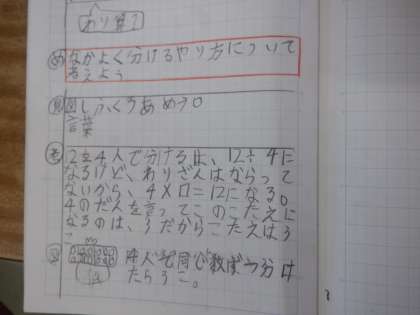 わり算?
め なかよく分けるやり方について
考えよう
図
言葉
考 12こ4人で分けるは、12÷4に
なるけど、わりざんはならって
ないから、4×口=12になる。
4のだんを言ってこのこたえに
なるのは、3だからこたえは3
図
4人で同じ数ずつ分け
たら3こ。